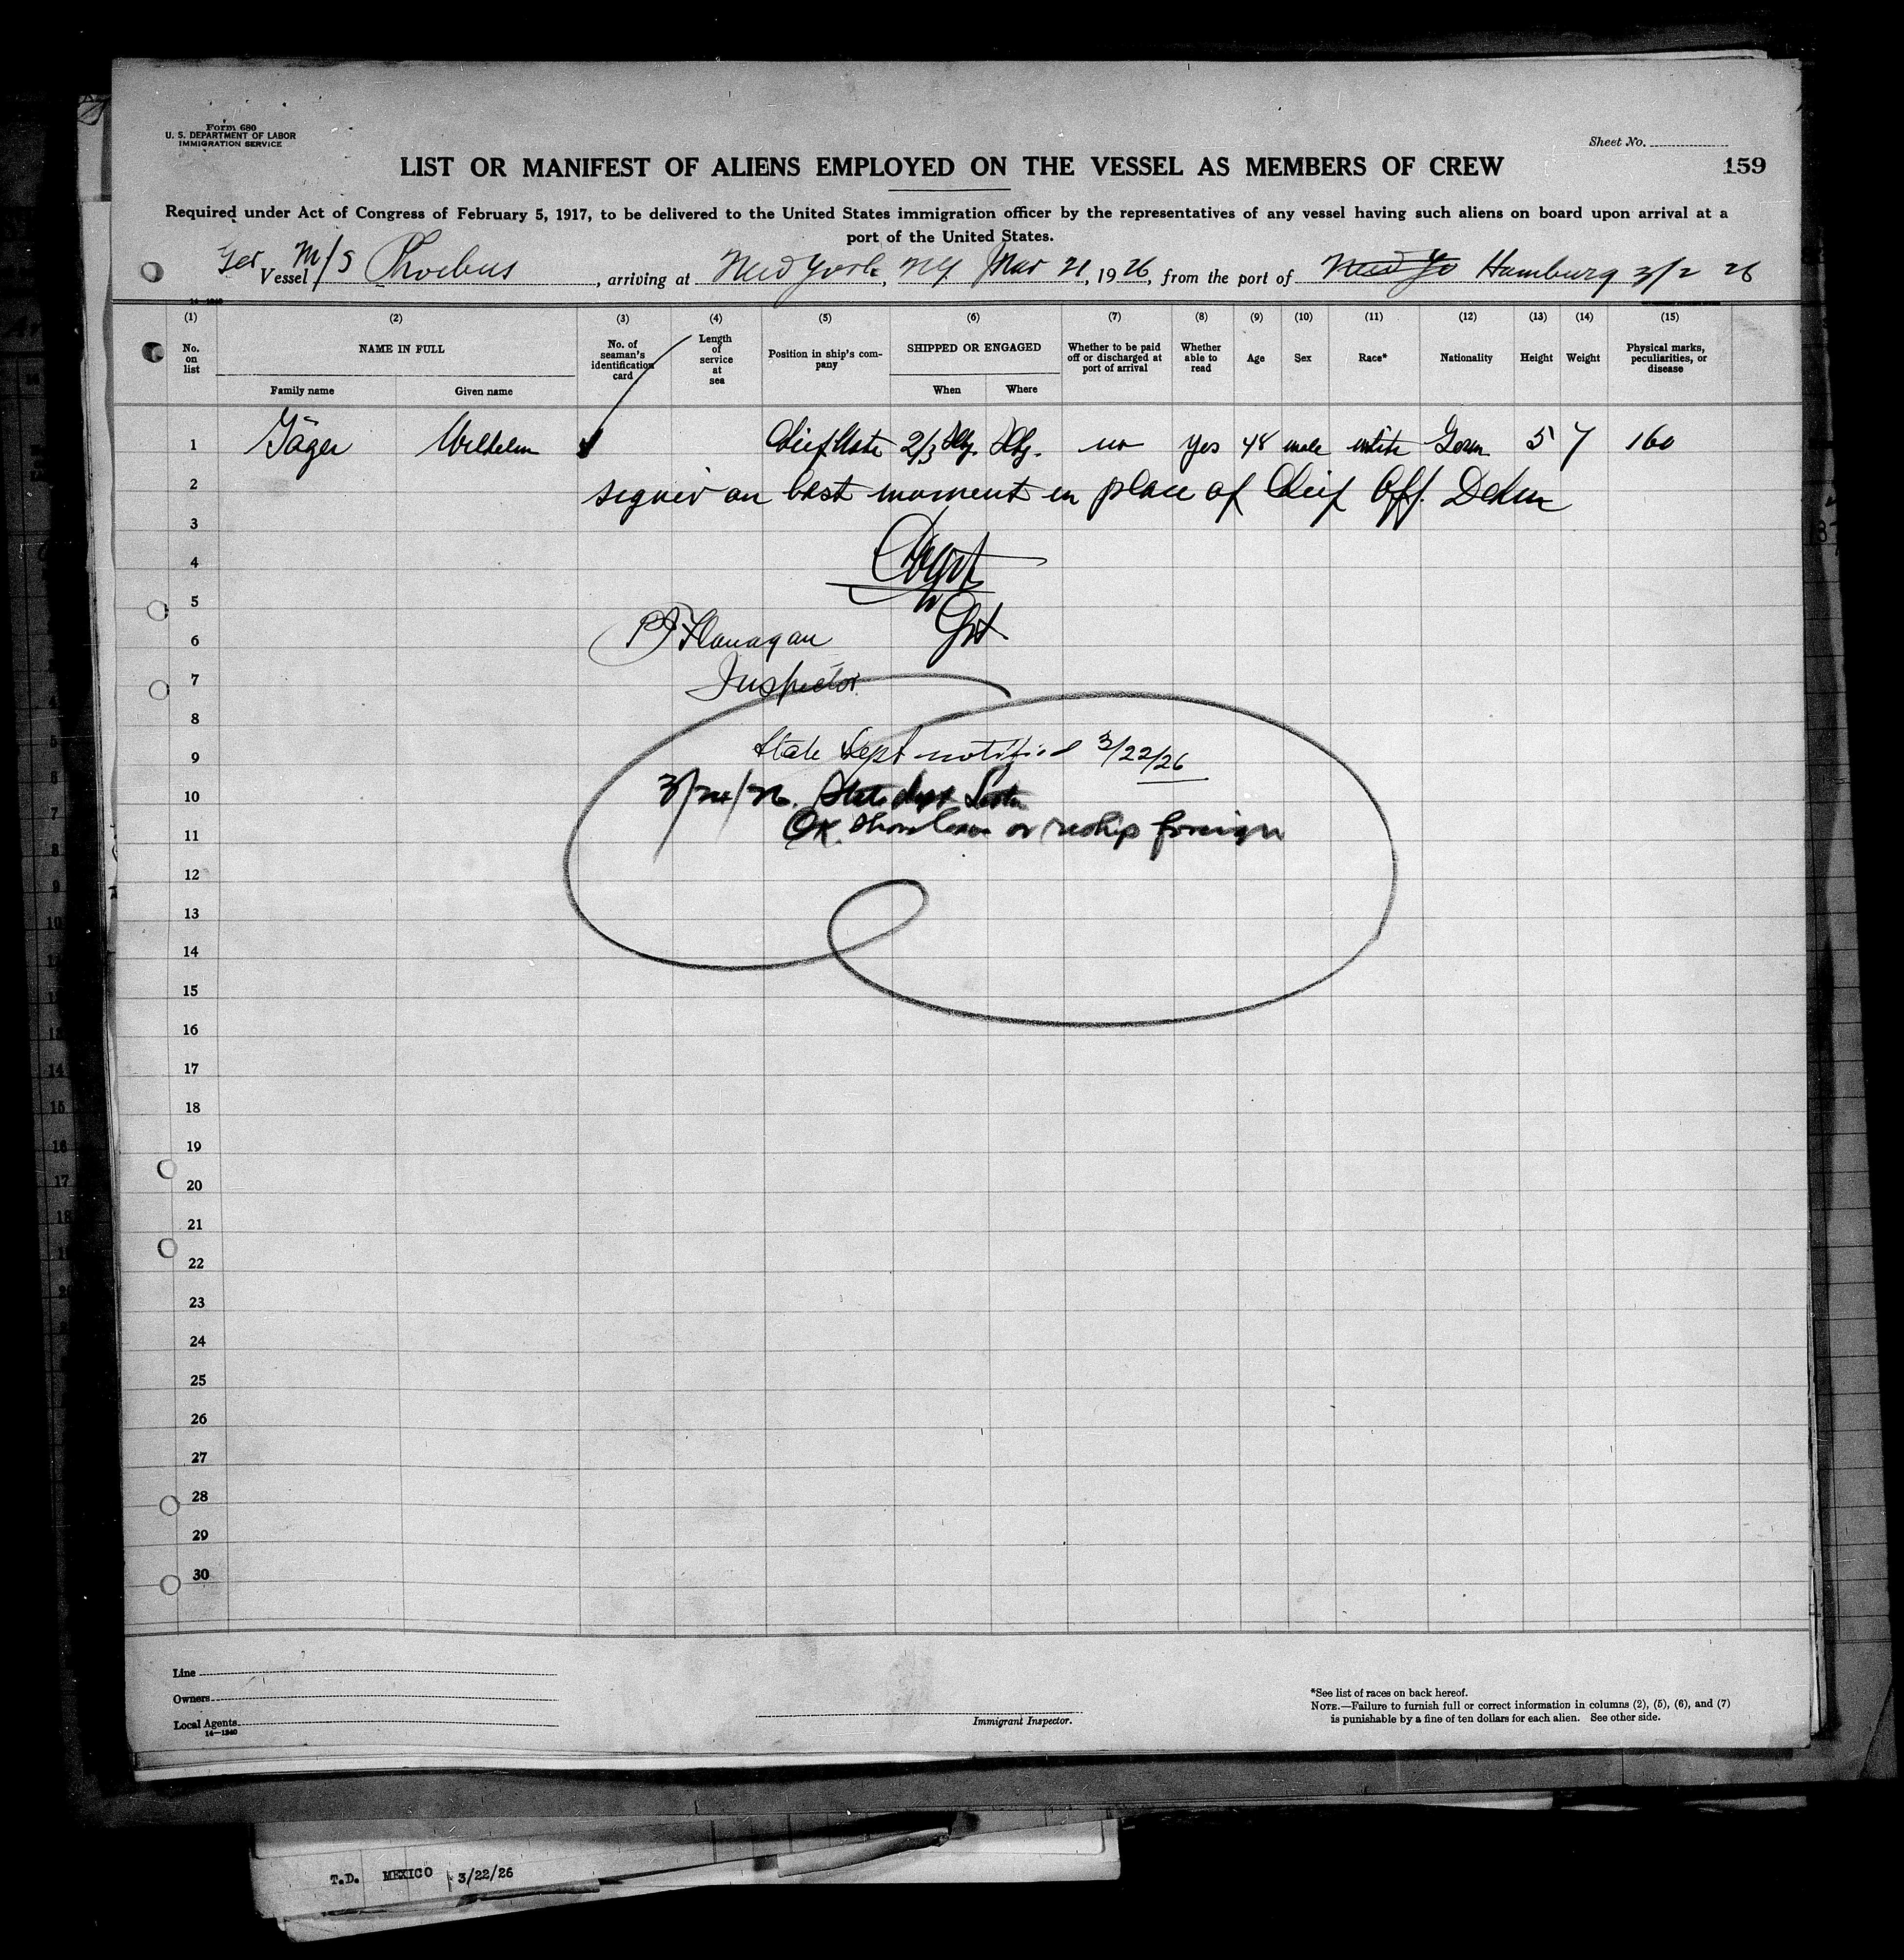 Form 680
U. S. DEPARTMENT OF LABOR
IMMIGRATION SERVICE
Sheet No.
LIST OR MANIFEST OF ALIENS EMPLOYED ON THE VESSEL AS MEMBERS OF CREW
159
Required under Act of Congress of February 5, 1917, to be delivered to the United States immigration officer by the representatives of any vessel having such aliens on board upon arrival at a
port of the United States.
Ger M/S Vessel Phoebus, arriving at New York, NY Mar 21, 1926, from the port of New Yo Hamburg 3/2 26
14-1240
(1) (2) (3) (4) (5) (6) (7) (8) (9) (10) (11) (12) (13) (14) (15)
No. on list NAME IN FULL No. of seaman's identification card Length of service at sea Position in ship's company SHIPPED OR ENGAGED Whether to be paid off or discharged at port of arrival Whether able to read Age Sex Race* Nationality Height Weight Physical marks, peculiarities, or disease
Family name Given name When Where
1 Jäger Wilhelm Chief Mate 2/3 Hbg. Hbg. no yes 48 male white Germ 5 7 160
2 signed on last moment in place of Chief Off. Dehn
3
4
5
6 PJ Flanagan
7 Inspector
8
9 State Dept notified 3/22/26
10 3/24/26. State dept
11 OK. shore leave or reship foreign
12
13
14
15
16
17
18
19
20
21
22
23
24
25
26
27
28
29
30
Line
Owners
Local Agents
14-1240
Immigrant Inspector.
*See list of races on back hereof.
NOTE.—Failure to furnish full or correct information in columns (2), (5), (6), and (7)
is punishable by a fine of ten dollars for each alien. See other side.
T.D. MEXICO 3/22/26